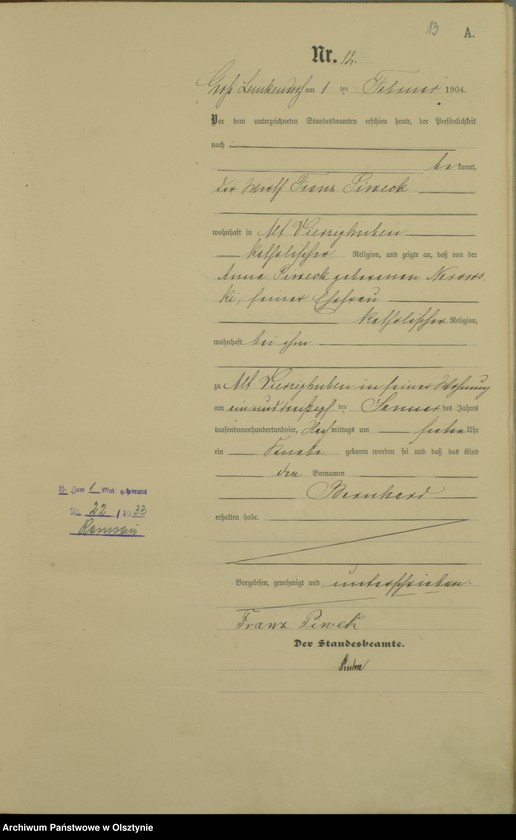 13 A.
Nr. 12.
Groß Lemkendorf am 1 ten Februar 1904.
Vor dem unterzeichneten Standesbeamten erschien heute, der Persönlichkeit
nach
be kannt,
der Wirth Franz Piweck
wohnhaft in Alt Vierzighuben
katholischer Religion, und zeigte an, daß von der
Anna Piweck geborenen
seiner Ehefrau
katholischer Religion,
wohnhaft bei ihm
zu Alt Vierzighuben in seiner Wohnung
am ein und dreißigsten Januar des Jahres
tausendneunhundertundvier, mittags um sieben Uhr
ein Knabe geboren worden sei und daß das Kind
den Vornamen
Bernhard
erhalten habe.
H. zum 1 Mal geheiratet
Nr. 22 / 1933
Ramsau
Vorgelesen, genehmigt und unterschrieben.
Franz Piwek
Der Standesbeamte.
Archiwum Państwowe w Olsztynie